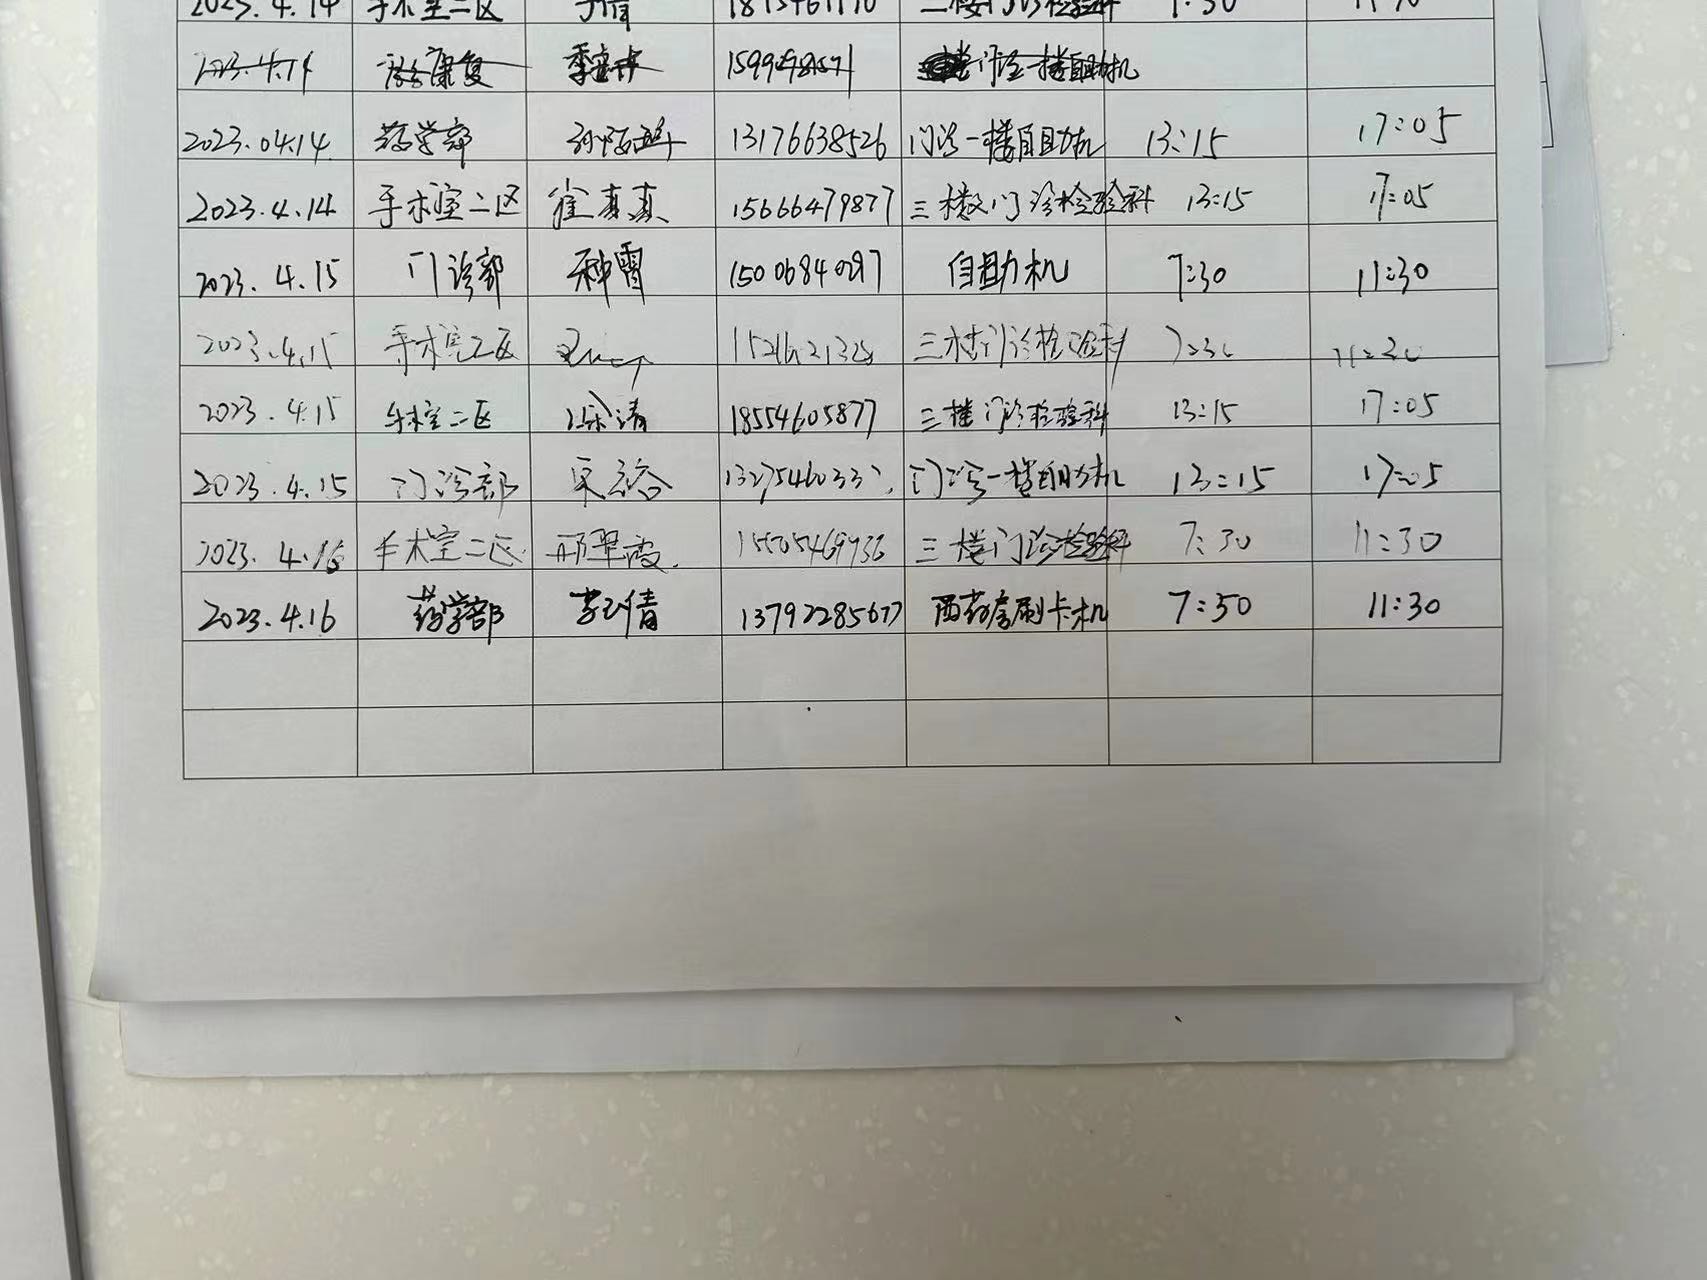 2023.4.14 手术室二区 三楼门诊检验科 7:30
2023.4.14 康复 门诊一楼自助机
2023.04.14 药学部 13176638526 门诊一楼自助机 13:15 17:05
2023.4.14 手术室二区 崔真真 15666479877 三楼门诊检验科 13:15 17:05
2023.4.15 门诊部 种霄 15006840297 自助机 7:30 11:30
2023.4.15 手术室二区 三楼门诊检验科 7:30 11:30
2023.4.15 手术室二区 徐清 18554605877 三楼门诊检验科 13:15 17:05
2023.4.15 门诊部 门诊一楼自助机 13:15 17:05
2023.4.16 手术室二区 邢翠霞 三楼门诊检验科 7:30 11:30
2023.4.16 药学部 13792285677 西药房刷卡机 7:50 11:30